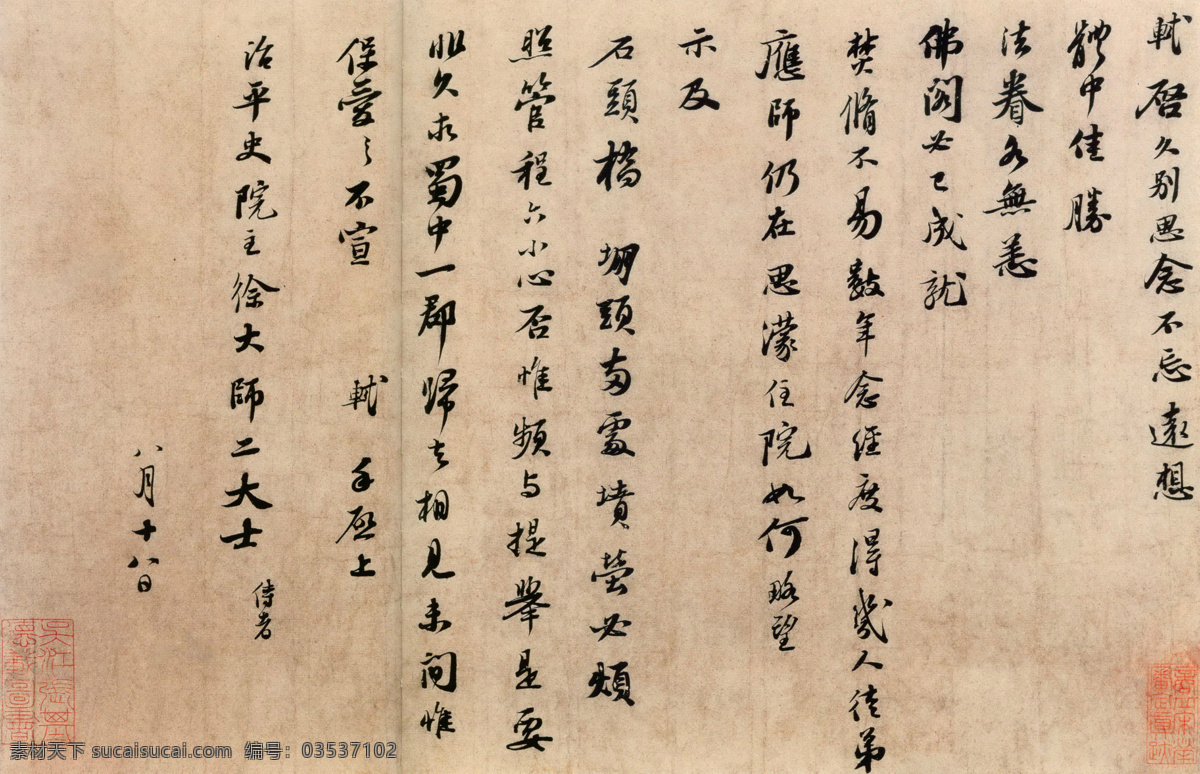 軾啓久別思念不忘遠想
體中佳勝
法眷各無恙
佛閣必已成就
焚脩不易數年念經度得幾人徒弟
應師仍在思濛住院如何略望
示及
石頭橋堋頭兩處墳塋必煩
照管程六小心否惟頻与提舉是要
非久求蜀中一郡歸去相見未間惟
保愛之不宣 軾手啓上
治平史院主徐大師二大士 侍者
八月十八日
素材天下 sucaisucai.com 编号：03537102